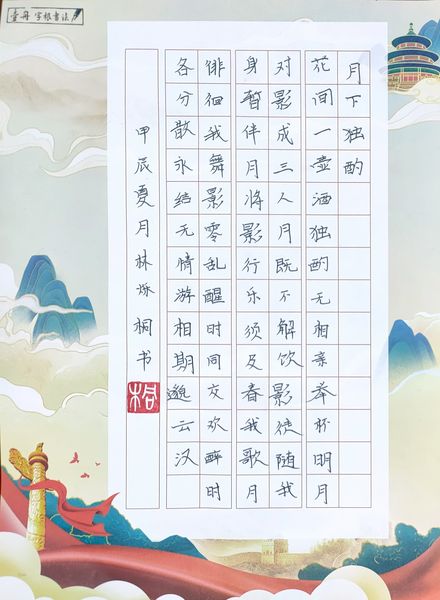 壹舟 字根书法
月下独酌
花间一壶酒独酌无相亲举杯明月
对影成三人月既不解饮影徒随我
身暂伴月将影行乐须及春我歌月
徘徊我舞影零乱醒时同交欢醉时
各分散永结无情游相期邈云汉
甲辰夏月林烁桐书